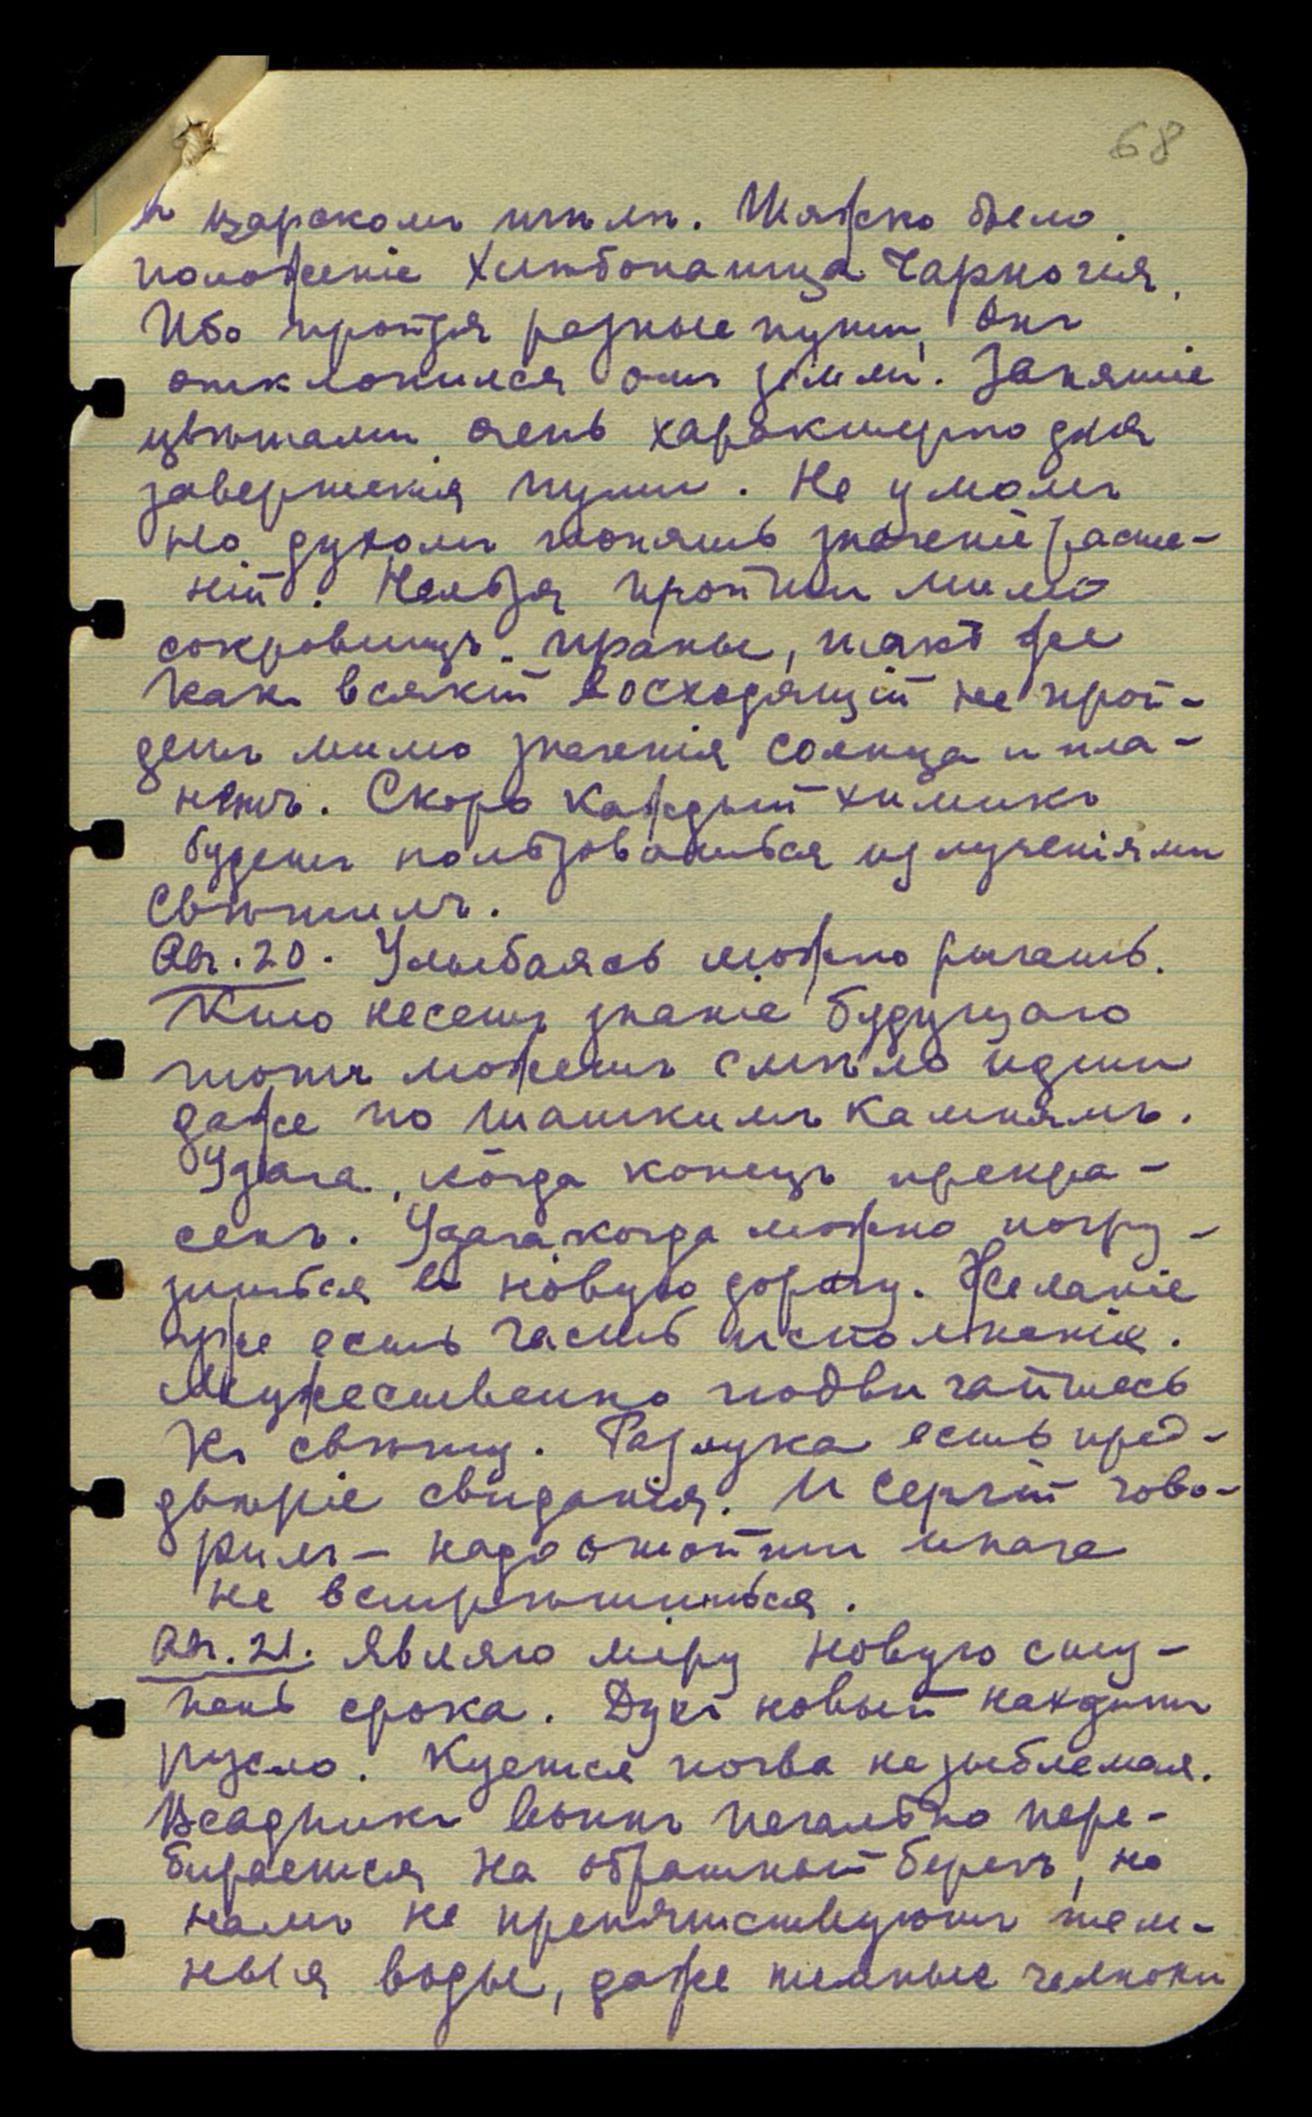 68
въ царскомъ тѣлѣ. Тяжко было
положеніе Химбопашца Чарногія.
Ибо пройдя разные пути, Онъ
отклонился отъ земли. Занятіе
цвѣтами очень характерно для
завершенія пути. Не умомъ
но духомъ понять значеніе расте-
ній. Нельзя пройти мимо
сокровищъ праны, такъ же
какъ всякій восходящій не прой-
детъ мимо значенія солнца и пла-
нетъ. Скоро каждый химикъ
будетъ пользоваться излученіями
Свѣтилъ.
Авг. 20. Улыбаясь можно рычать.
Кто несетъ знаніе будущаго
тотъ можетъ смѣло идти
даже по шаткимъ камнямъ.
Удача, когда конецъ прекра-
сенъ. Удача когда можно погру-
зиться въ новую дорогу. Желаніе
уже есть часть исполненія.
Мужественно подвигайтесь
Къ свѣту. Разлука есть пред-
дверіе свиданія. И Сергій гово-
рилъ – надо отойти иначе
не встрѣтиться.
Авг. 21. Являю міру новую сту-
пень срока. Духъ новый находитъ
русло. Куется почва незыблемая.
Всадникъ воинъ печально пере-
бирается на обратный берегъ, но
намъ не препятствуютъ тем-
ныя воды, даже темные челноки